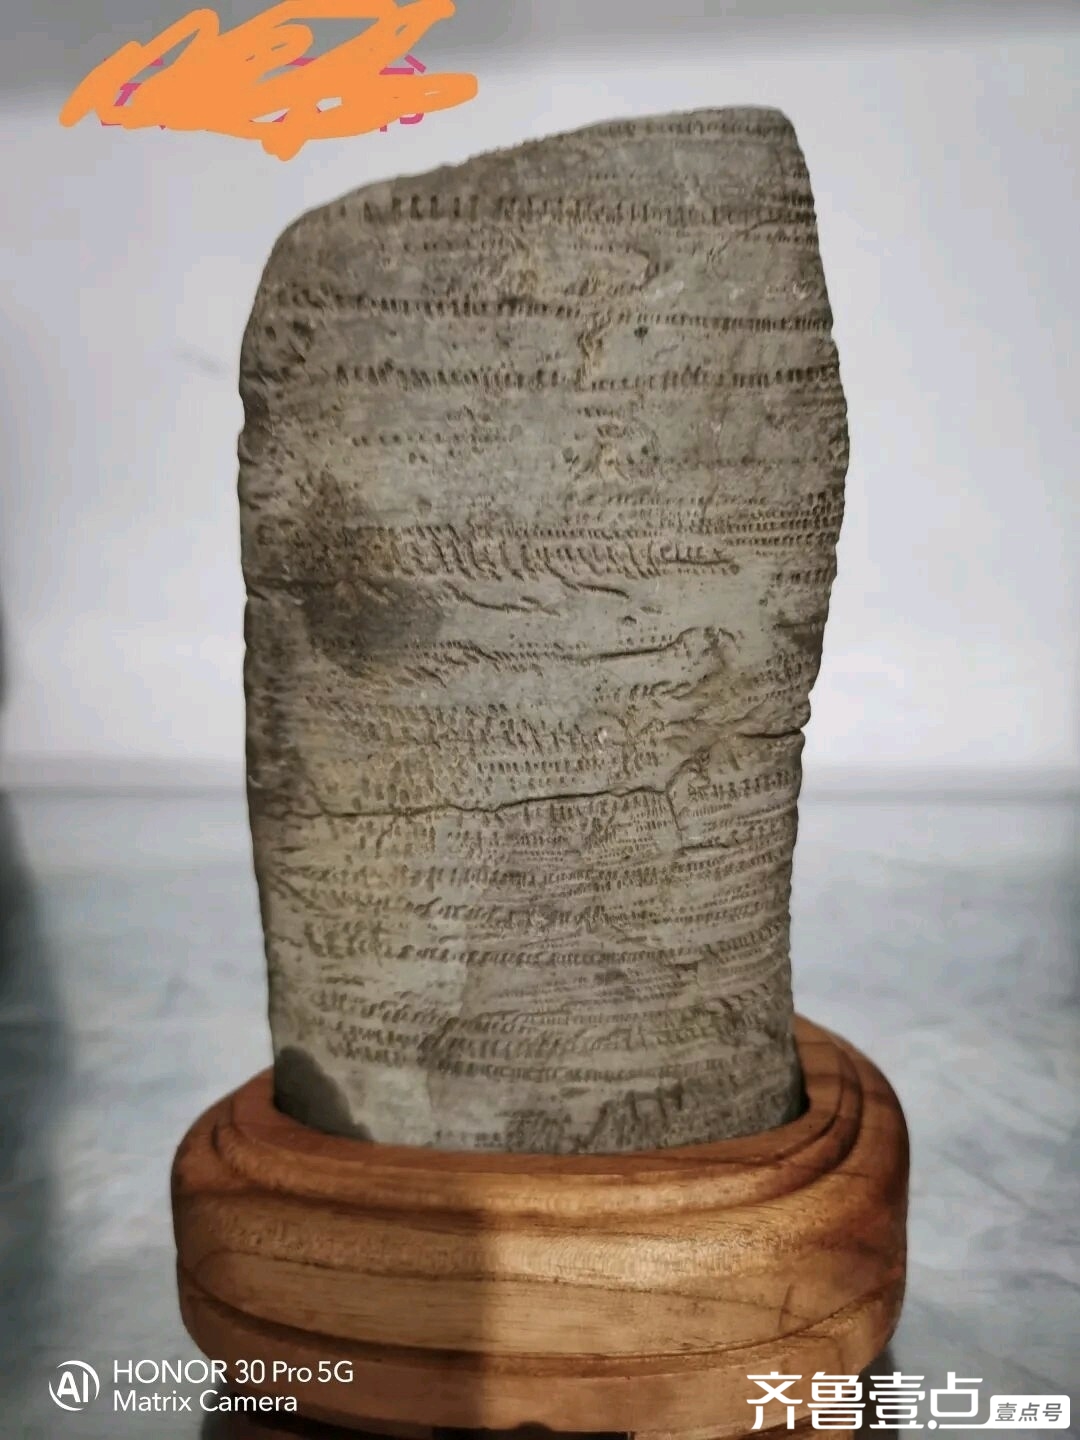 HONOR 30 Pro 5G
Matrix Camera
齐鲁壹点
壹点号